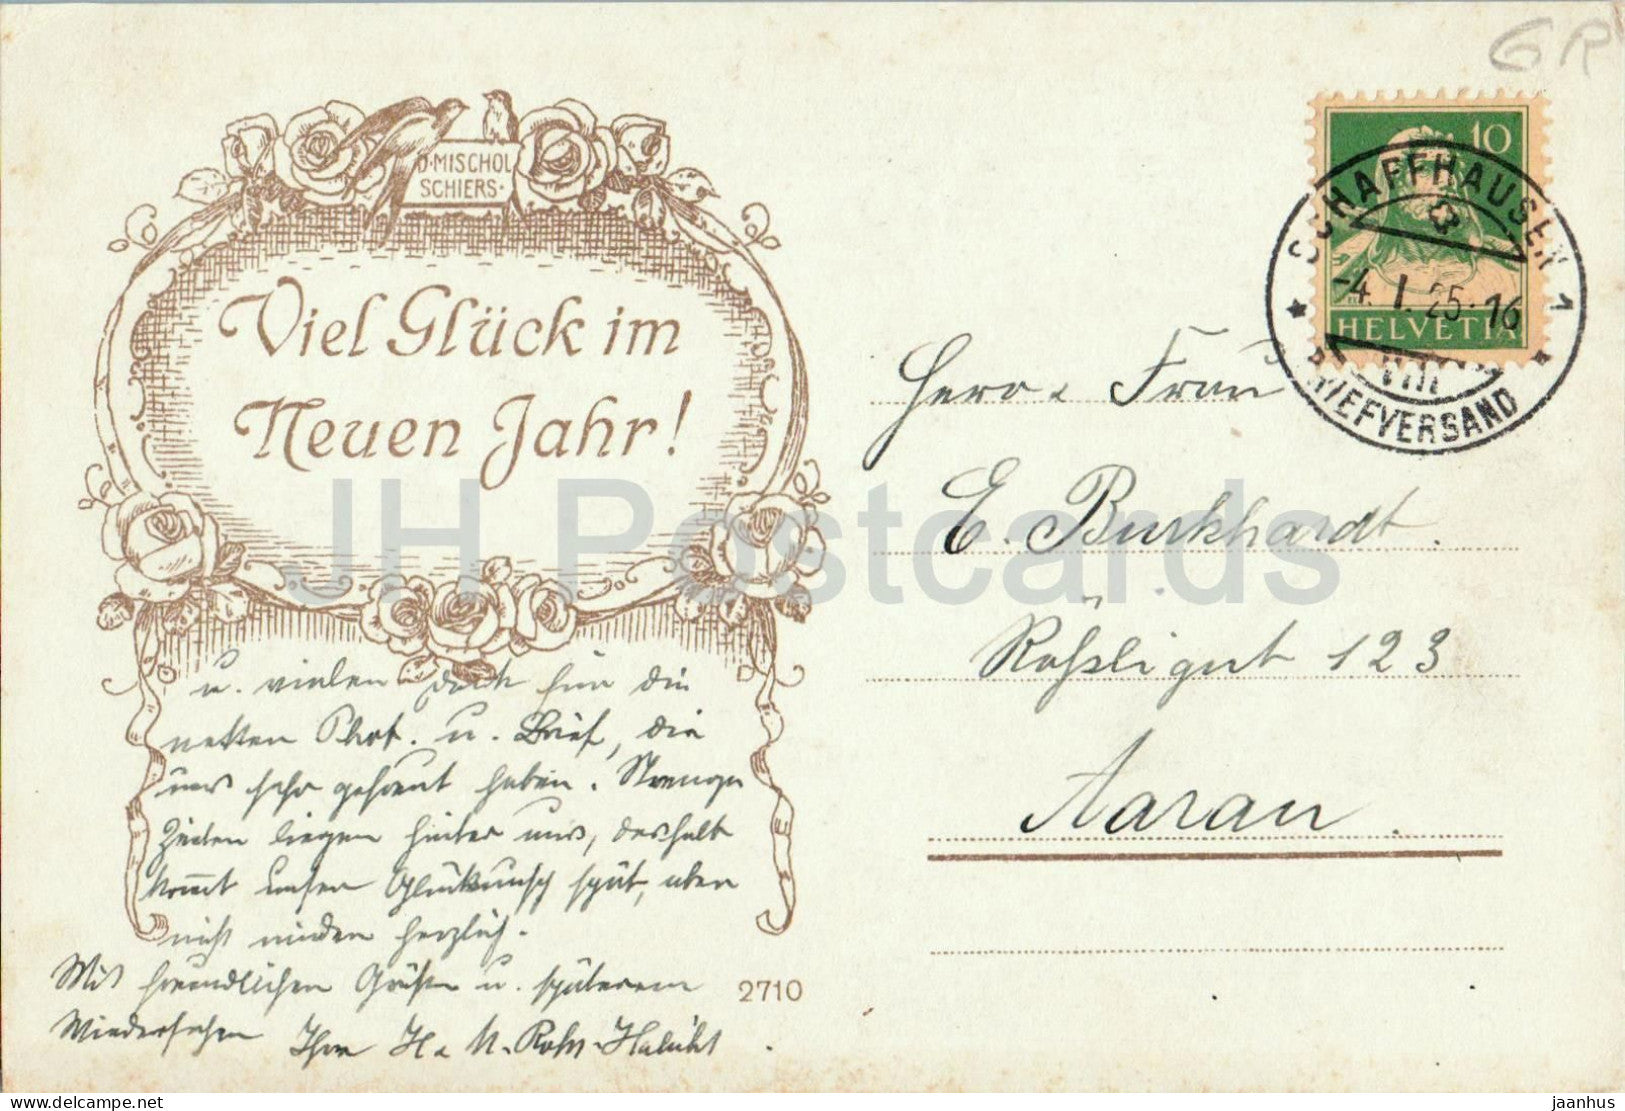 GR
10
HELVETIA
SCHAFFHAUSEN 1
-4. I. 25. 16
VIII
BRIEFVERSAND
D. MISCHOL
SCHIERS.
Viel Glück im
Neuen Jahr!
u. vielen Dank für die
netten Phot. u. Brief, die
uns sehr gefreut haben. Strenge
Zeiten liegen hinter uns, deshalb
kommt unser Glückwunsch spät, aber
nicht minder herzlich.
Mit freundlichen Grüßen u. späterem
Wiedersehen Ihre H. u. M. Rohr
2710
Herr u. Frau
E. Burkhardt.
Rößligut 123
Aarau.
JH Postcards
jaanhus
www.delcampe.net